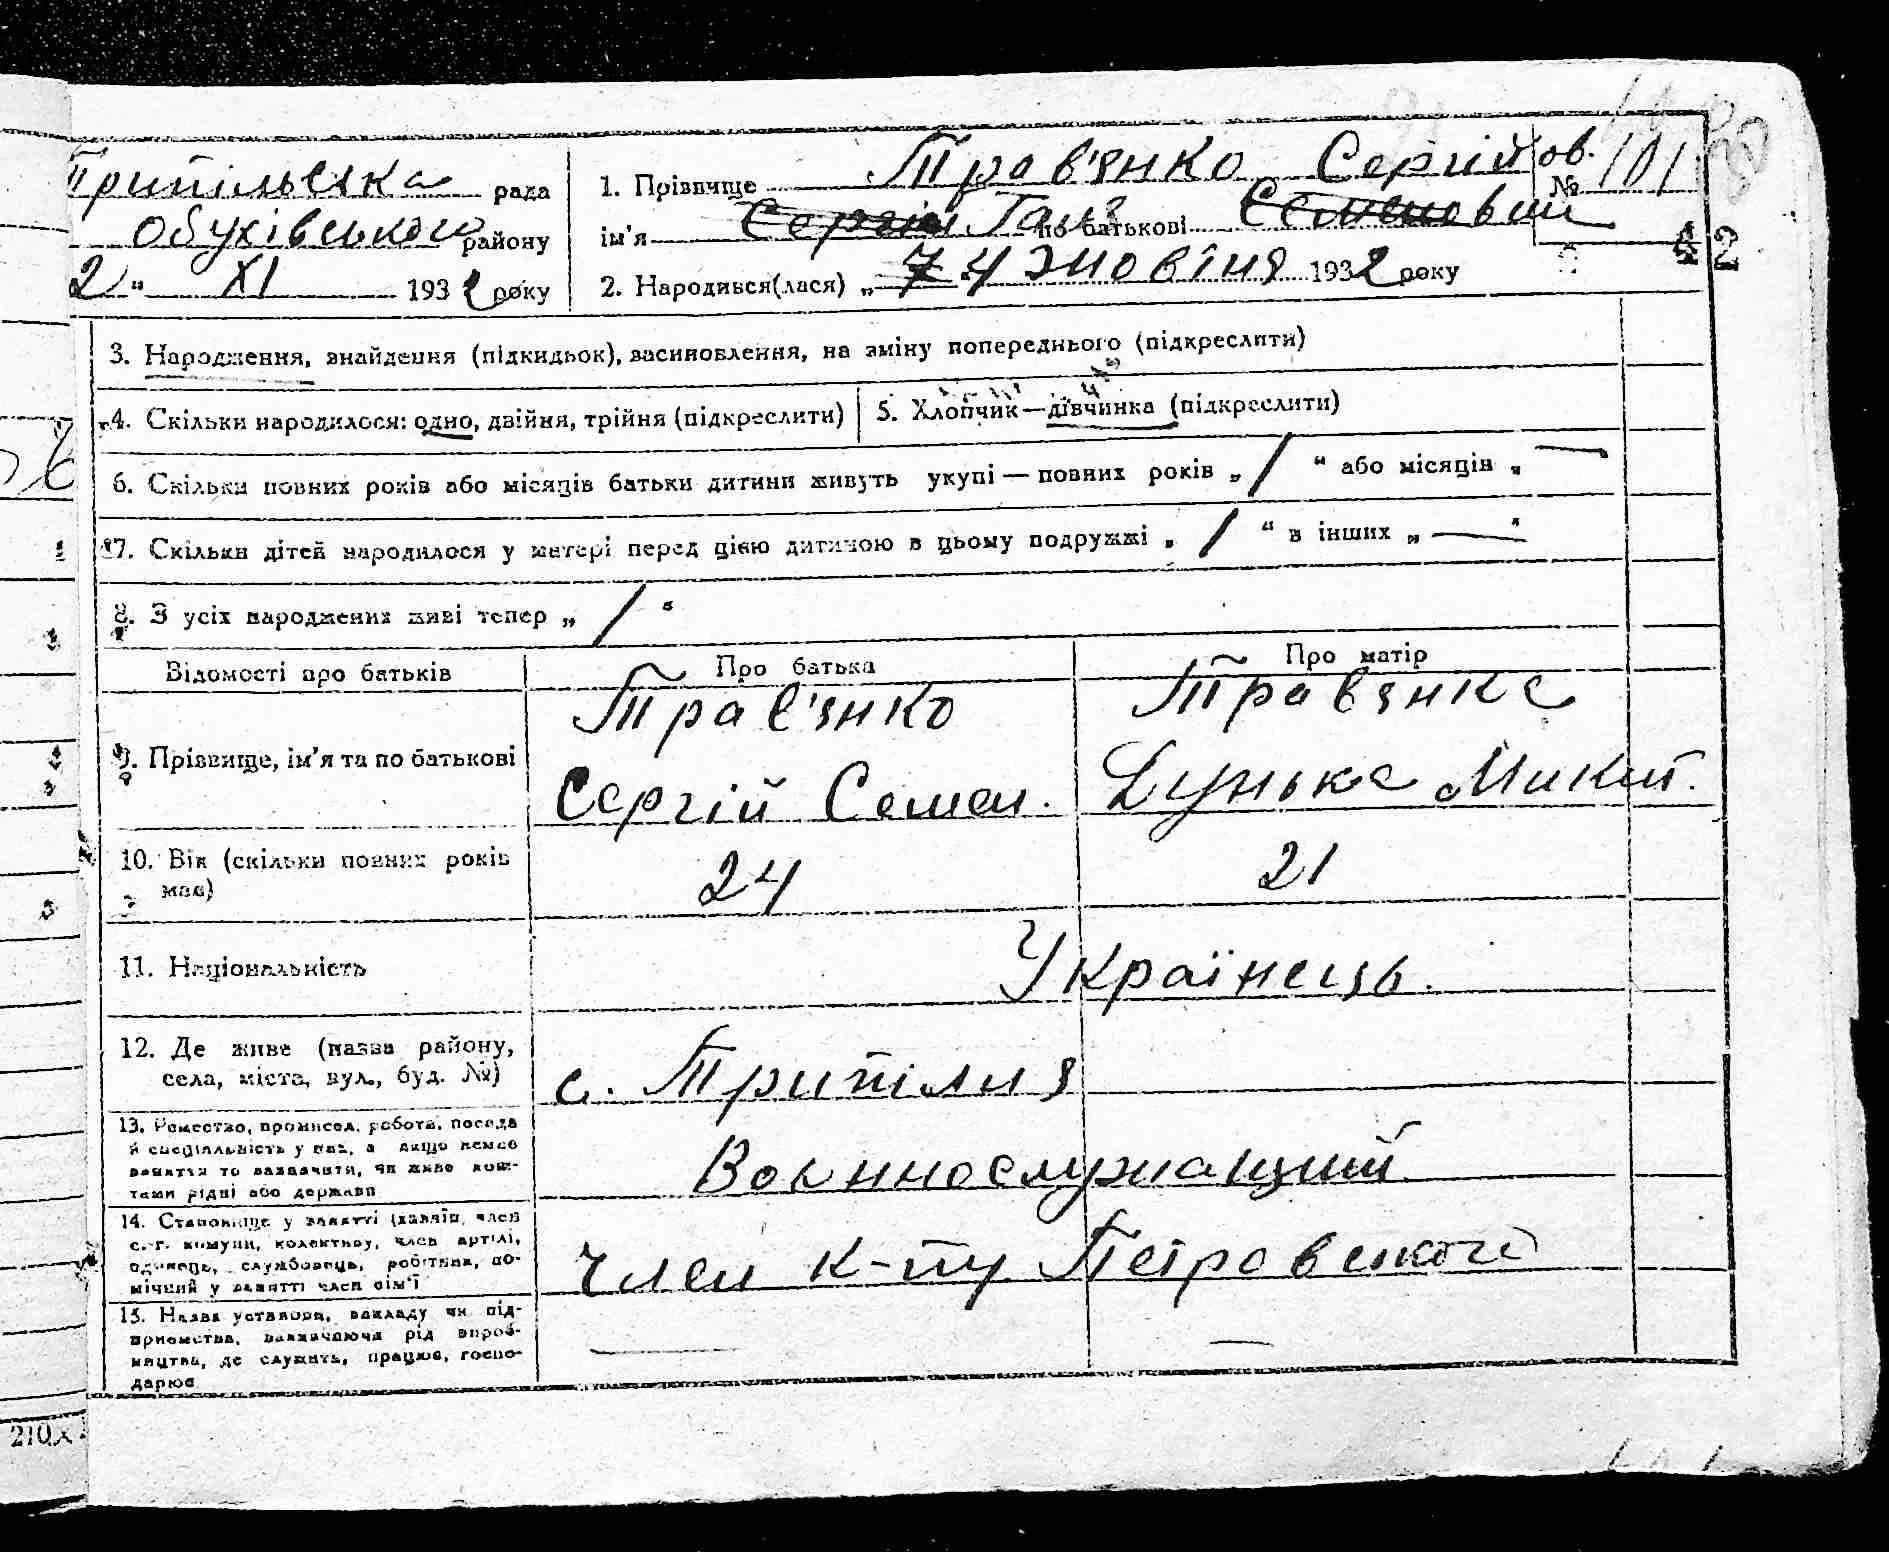 Трипільська рада
Обухівського району
2 " XI 1932 року
1. Прізвище Трав'янко Сергійов.
ім'я Сергій Галя по батькові Семеновий
№ 101
42
2. Народився(лася) „ 7 4 жовтня 1932 року
3. Народження, знайдення (підкидьок), засиновлення, на зміну попереднього (підкреслити)
4. Скільки народилося: одно, двійня, трійня (підкреслити)
5. Хлопчик—дівчинка (підкреслити)
6. Скільки повних років або місяців батьки дитини живуть укупі — повних років „ 1 “ або місяців „ —
7. Скільки дітей народилося у матері перед цією дитиною в цьому подружжі „ 1 “ в інших „ — “
8. З усіх народжених живі тепер „ 1 “
Відомості про батьків
Про батька
Про матір
9. Прізвище, ім'я та по батькові
Трав'янко
Сергій Семен.
Травянка
Дунька Микит.
10. Вік (скільки повних років
має)
24
21
11. Національність
Українець.
12. Де живе (назва району,
села, міста, вул., буд. №)
с. Трипілля
13. Ремество, промисел, робота, посада
й спеціяльність у них, а якщо немає
заняття то зазначити, чи живе кош-
тами рідні або держави
Воєннослужащий
14. Становище у занятті (хазяїн, член
с.-г. комуни, колективу, член артілі,
одинець, службовець, робітник, по-
мічний у занятті член сім'ї
член к-ту Петровського
15. Назва установи, закладу чи під-
приємства, зазначаючи рід вироб-
ництва, де служить, працює, госпо-
дарює
210